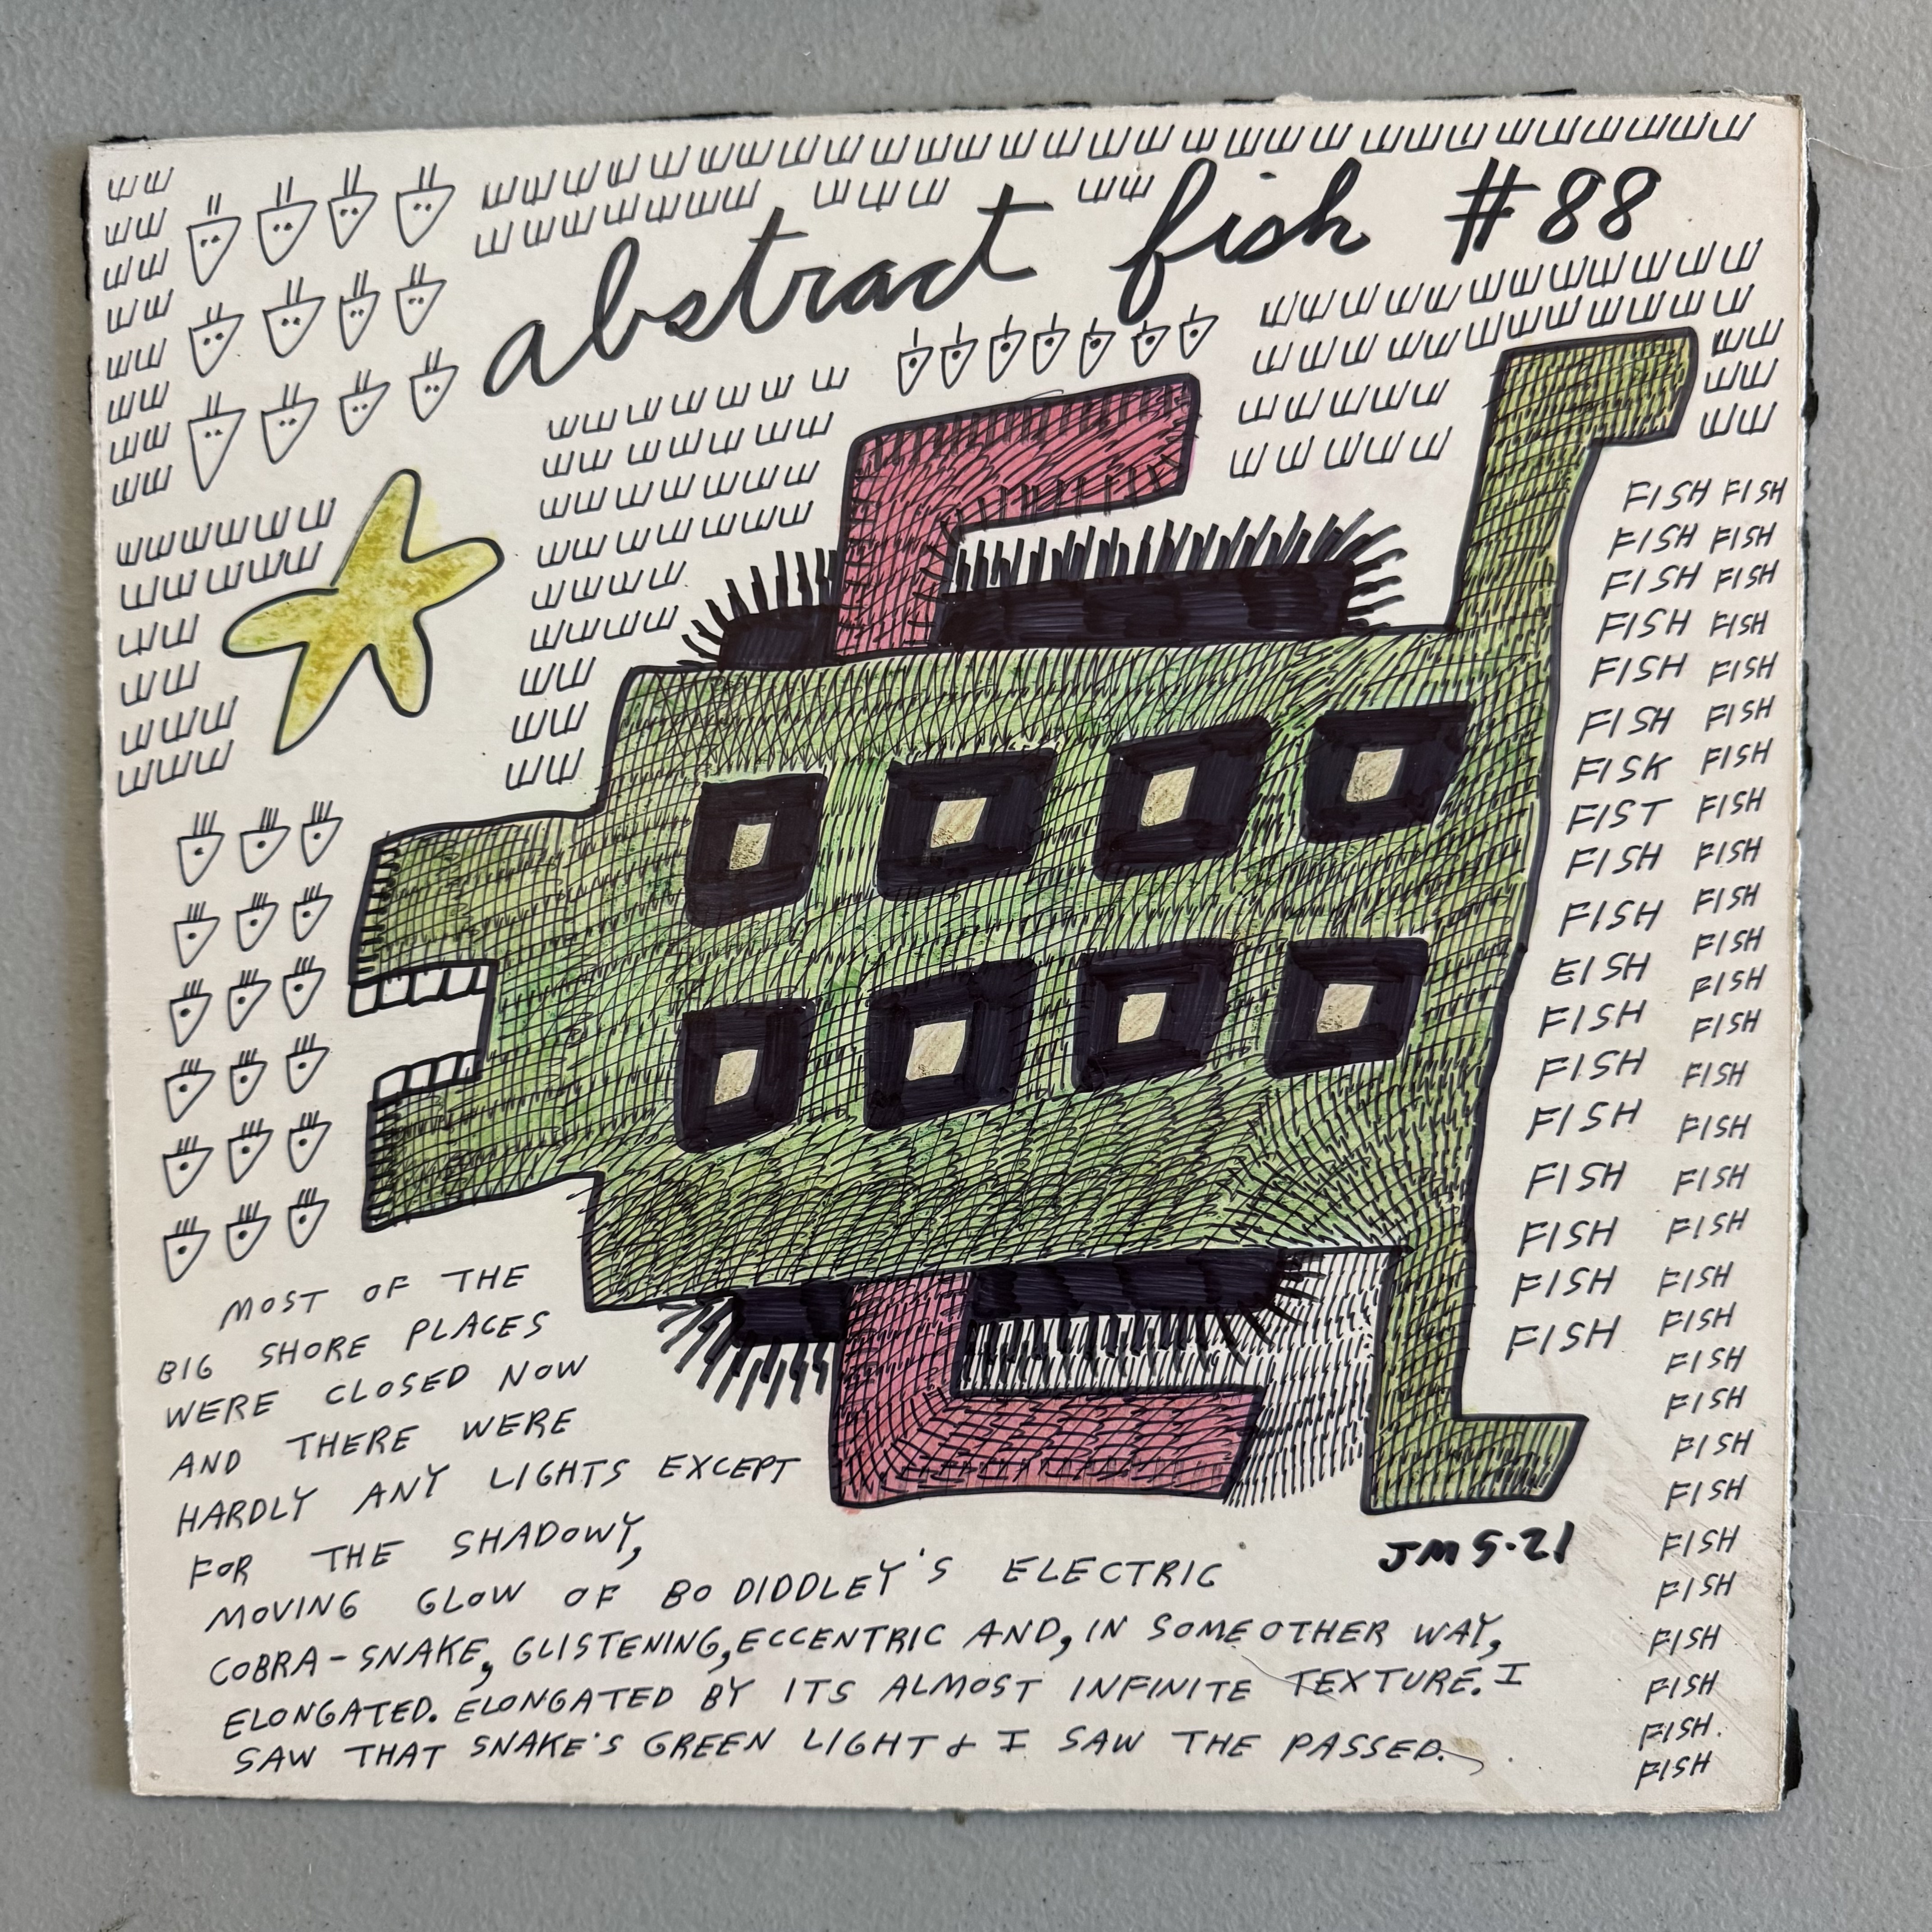 abstract fish #88
FISH FISH
FISH FISH
FISH FISH
FISH FISH
FISH FISH
FISH FISH
FISK FISH
FIST FISH
FISH FISH
FISH FISH
EISH FISH
FISH FISH
FISH FISH
FISH FISH
FISH FISH
FISH FISH
FISH FISH
FISH FISH
FISH
FISH
FISH
FISH
FISH
FISH
FISH
FISH
FISH
FISH.
FISH
MOST OF THE
BIG SHORE PLACES
WERE CLOSED NOW
AND THERE WERE
HARDLY ANY LIGHTS EXCEPT
FOR THE SHADOWY,
MOVING GLOW OF BO DIDDLEY'S ELECTRIC
COBRA-SNAKE, GLISTENING, ECCENTRIC AND, IN SOME OTHER WAY,
ELONGATED. ELONGATED BY ITS ALMOST INFINITE TEXTURE. I
SAW THAT SNAKE'S GREEN LIGHT & I SAW THE PASSED.
JM 5·21